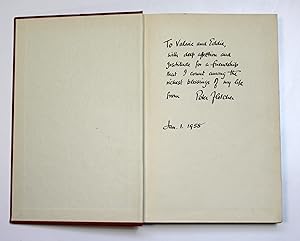 To Valerie and Eddie,
with deep affection and
gratitude for a friendship
that I count among the
richest blessings of my life
from Peter Fletcher
Jan. 1. 1955